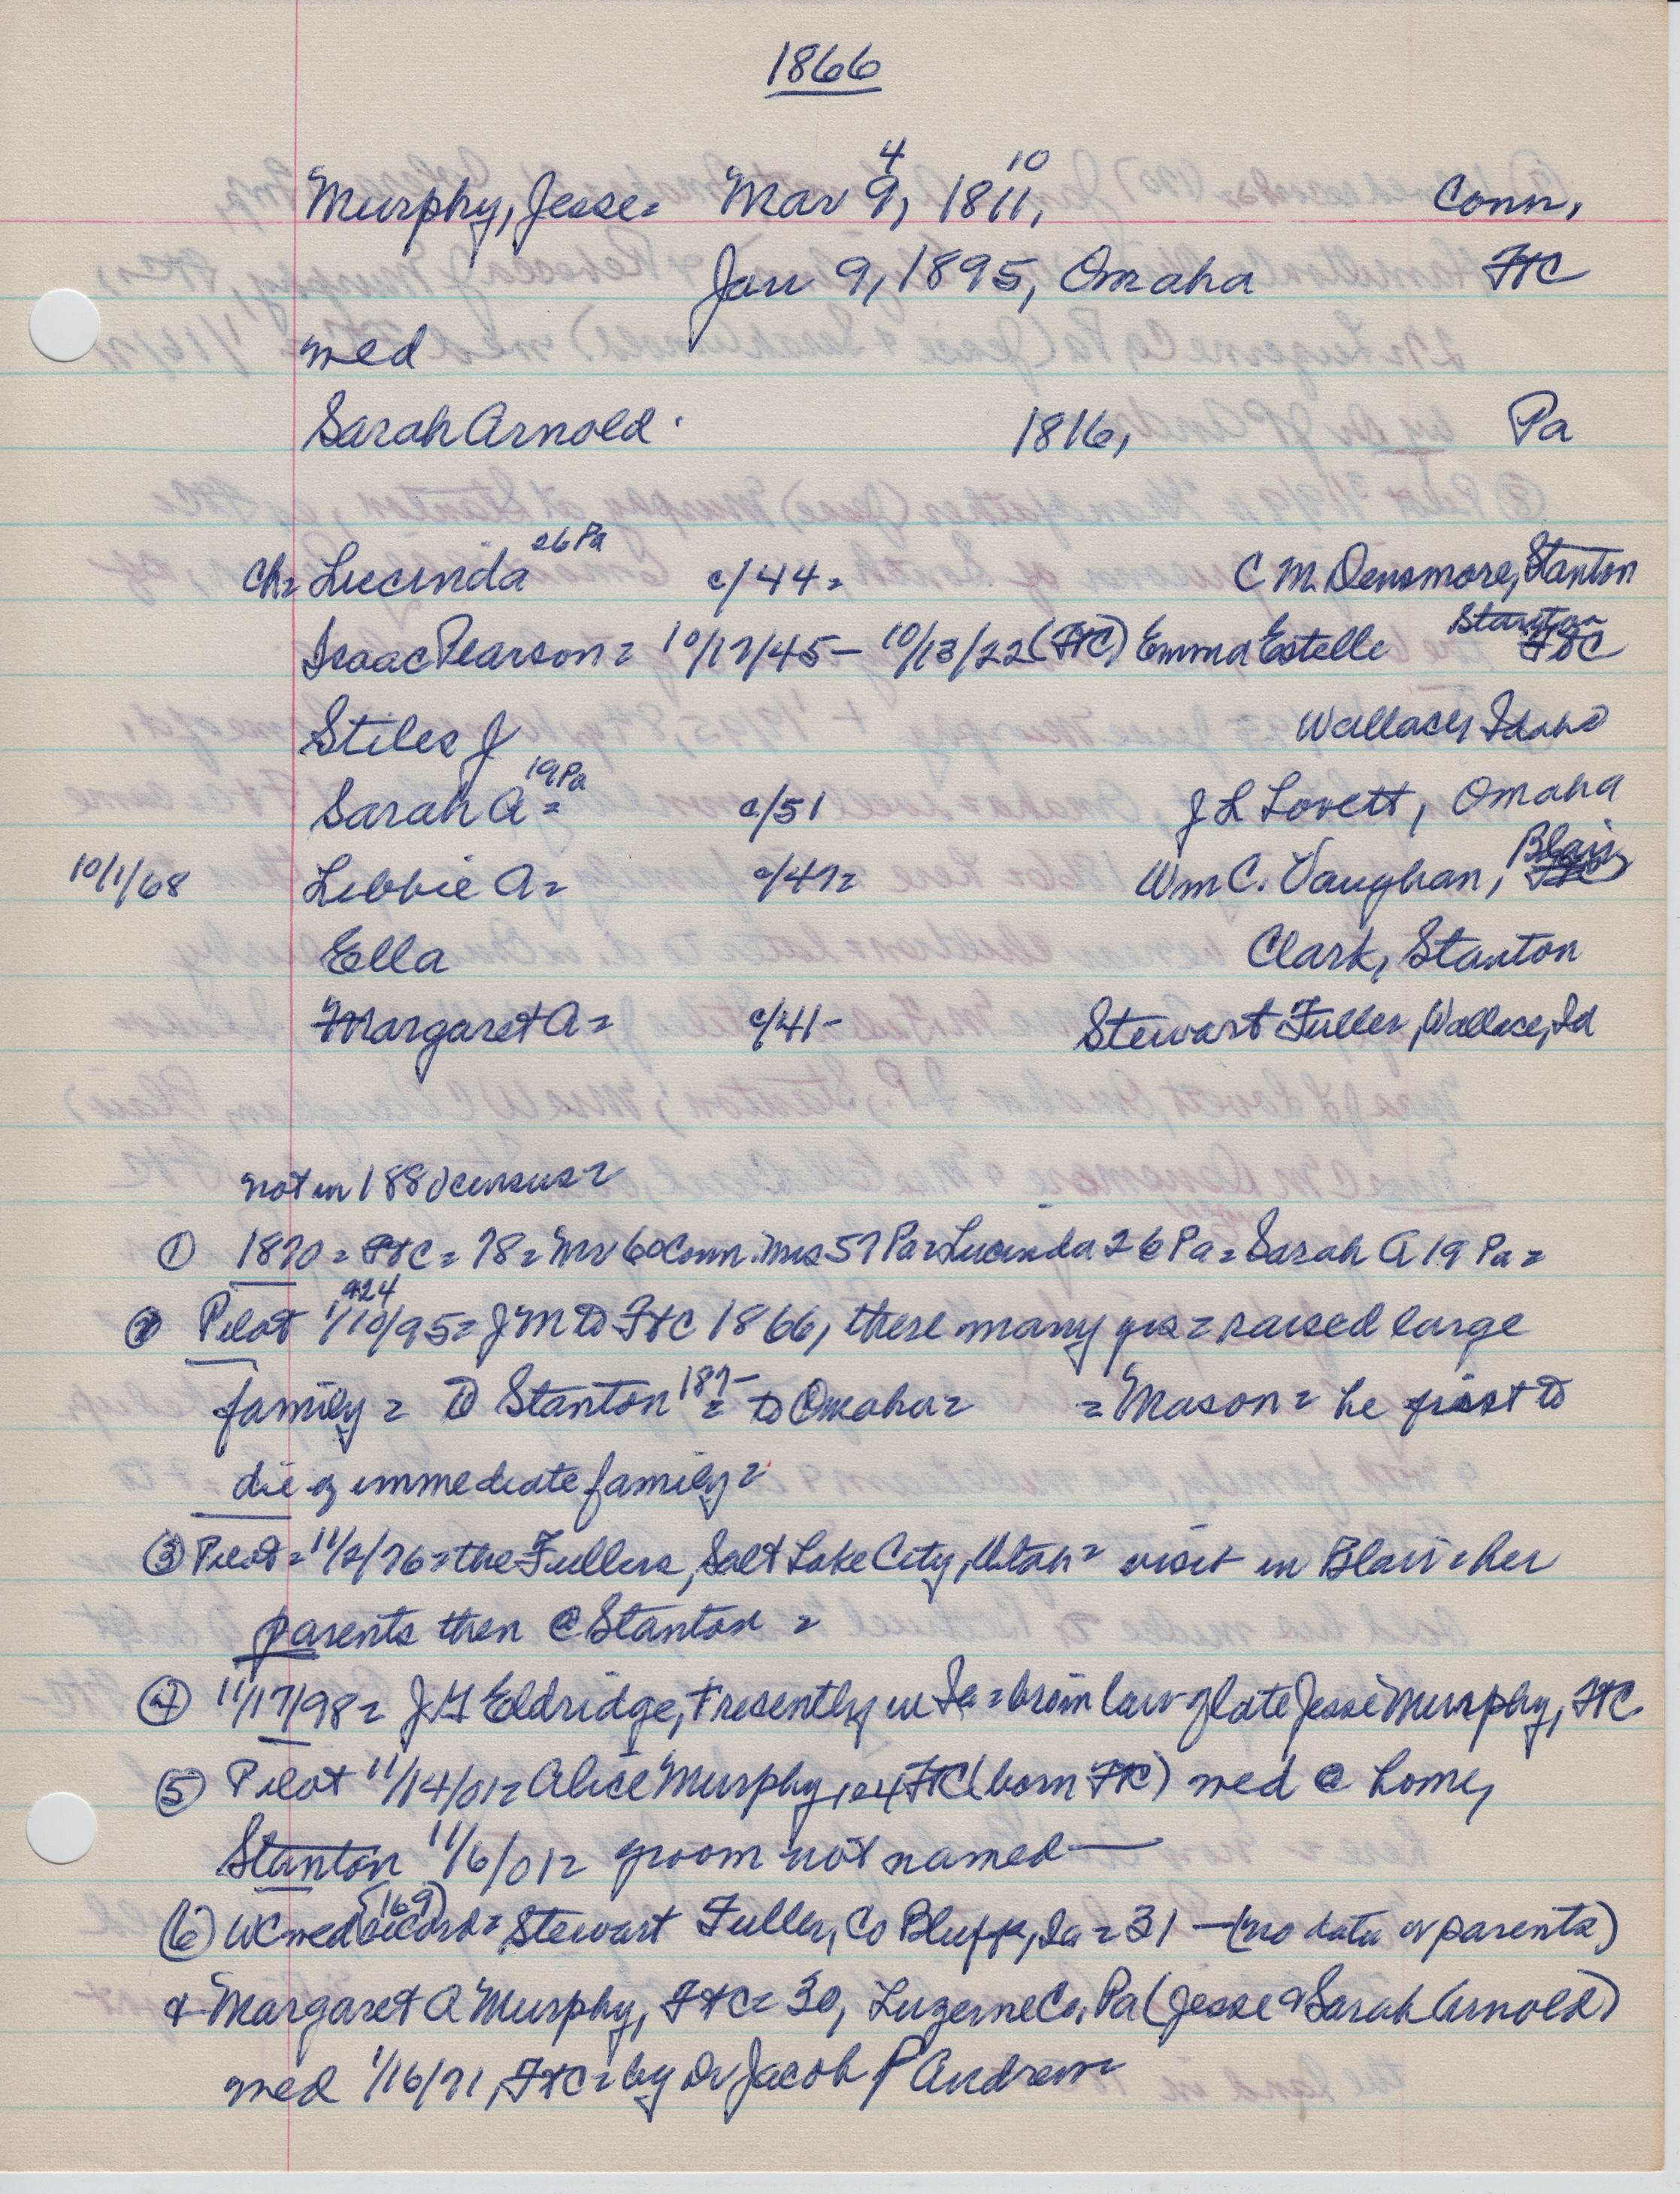 1866
4 10
Murphy, Jesse= Mar 9, 1811, Conn,
Jan 9, 1895, Omaha FtC
med
Sarah Arnold. 1816, Pa
26 Pa
ch= Lucinda c/44= C M Densmore, Stanton
Stanton
Isaac Pearson= 10/17/45 – 10/13/22 (FtC) Emma Estelle FtC
Stiles J Wallace, Idaho
19 Pa
Sarah A= c/51 J L Lovett, Omaha
Blair
10/1/68 Libbie A= c/47= Wm C. Vaughan, FtC
Ella Clark, Stanton
Margaret A= c/41- Stewart Fuller, Wallace, Id
not in 1880 census=
① 1870= FtC= 78= Mr 60 Conn. Mrs 57 Pa= Lucinda 26 Pa= Sarah A 19 Pa=
924
② Pilot 1/10/95= JM to FtC 1866, there many yrs= raised large
family= to Stanton 187-= to Omaha= =Mason= he first to
die of immediate family=
③ Pilot= 11/2/76= the Fullers, Salt Lake City, Utah= visit in Blair= her
parents then @ Stanton=
④ 11/17/98= J G Eldridge, presently in Ia= bro in law of late Jesse Murphy, FtC.
⑤ Pilot 11/14/01= Alice Murphy, FtC (born FtC) med @ home,
Stanton 11/6/01= groom not named—
(169)
⑥ WC med record= Stewart Fuller, Co Bluffs, Ia= 31 – (no data of parents)
& Margaret A Murphy, FtC= 30, Luzerne Co. Pa (Jesse & Sarah Arnold)
med 1/16/71, FtC= by Dr Jacob P Andrew=